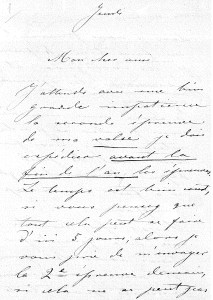 Jeudi
Mon cher ami
J'attends avec une bien
grande impatience
la seconde épreuve
de ma valse je dois
expédier avant la
fin de l'an les épreuves.
Le temps est bien court,
si vous pensez que
tout cela peut se faire
d'ici 5 jours, alors je
vous prie de m'envoyer
la 2me épreuve demain,
si cela ne se peut pas